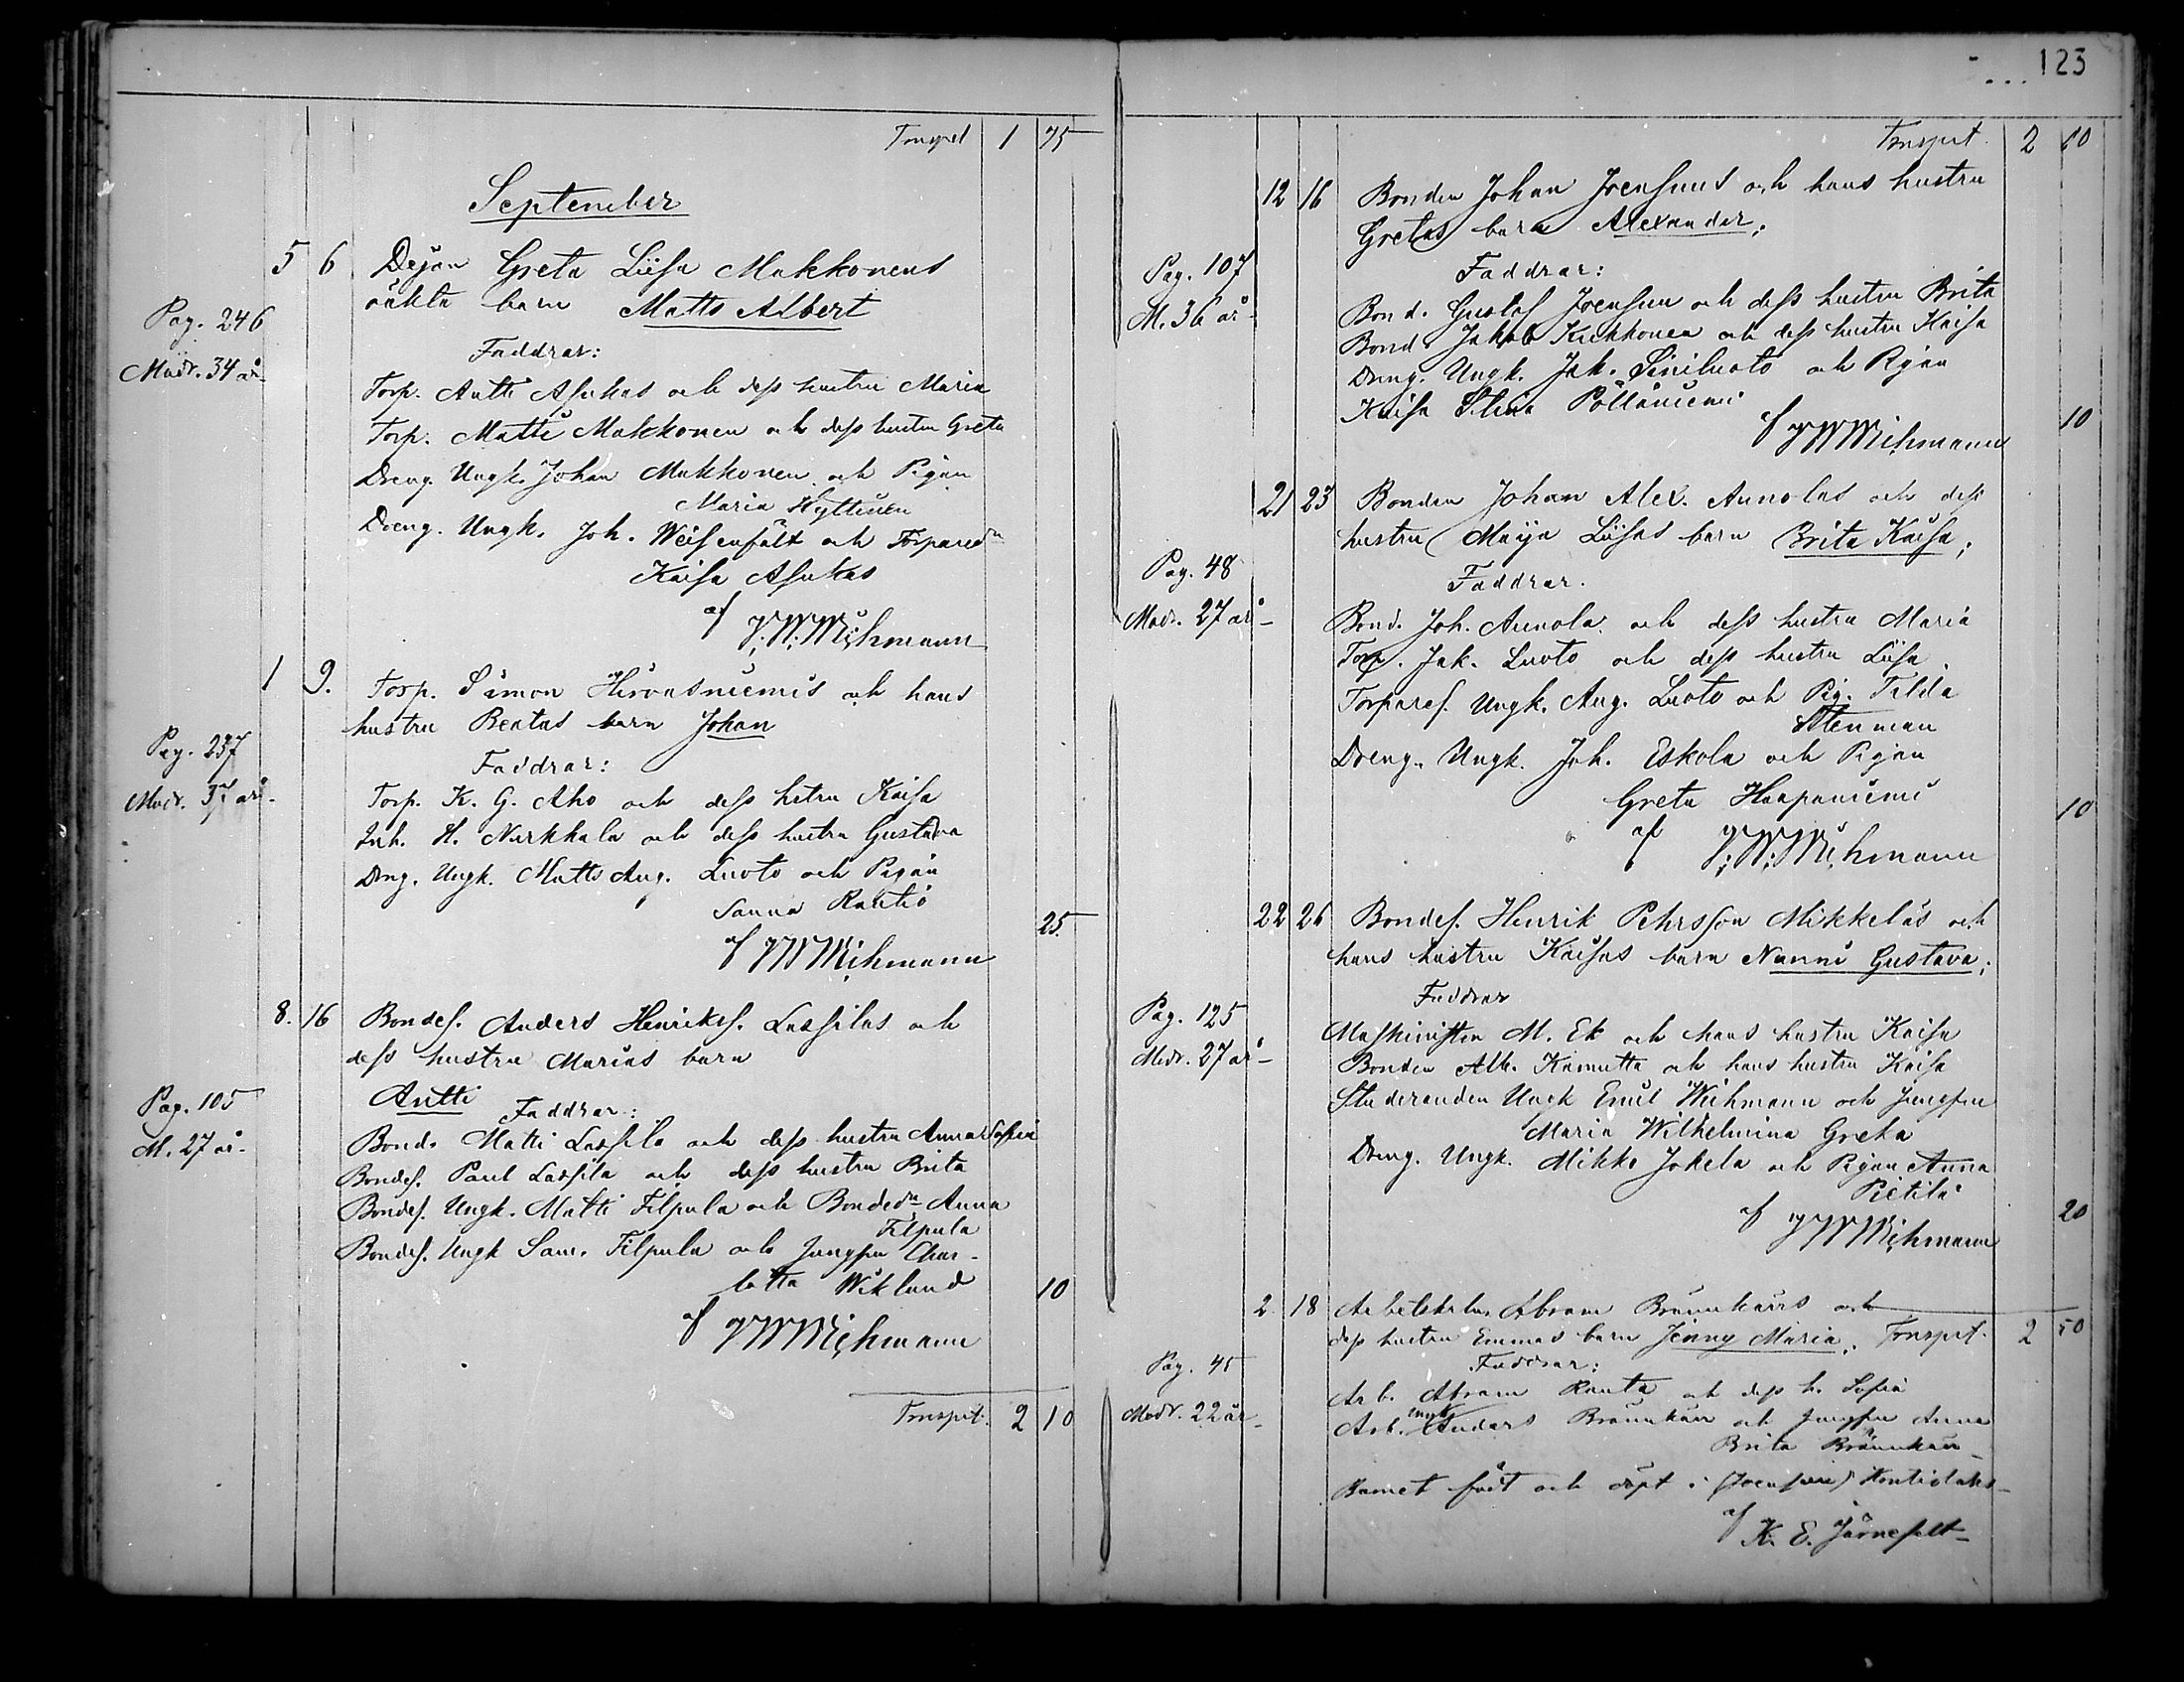 Trnsprt 1 75
September
5 6 Dejan Greta Liisa Makkonens
oäkta barn Matts Albert
Pag. 246
Modr. 34 år
Faddrar:
Torp. Antti Asukas och dess hustru Maria
Torp. Matti Makkonen och dess hustru Greta
Dreng. Ungk. Johan Makkonen och Pigan
Maria Hyttinen
Dreng. Ungk. Joh. och
Kaisa Asukas
af J. W. Wichmann
1 9. Torp. Simon Hirvasniemis och hans
hustru Beatas barn Johan
Pag. 237
Modr. 37 år
Faddrar:
Torp. K. G. Aho och dess hstru Kaisa
Inh. H. Nurkkala och dess hustru Gustava
Drng. Ungk. Matts Aug. Luoto och Pigan
Sanna Rautio
25
af J W Wichmann
8. 16 Bondes. Anders Henrikss. Lassilas och
dess hustru Marias barn
Antti
Pag. 105
M. 27 år
Faddrar:
Bond. Matti Lassila och dess hustru Anna Sofia
Bondes. Paul Lassila och dess hustru Brita
Bondes. Ungk. Matti Filpula och Bonded:n Anna
Filpula
Bondes. Ungk Sam. Filpula och Jungfru Char-
lotta Wiklund
10
af J W Wichmann
Trnsprt. 2 10
123
Trnsprt. 2 10
12 16 Bonden Johan Joensuus och hans hustru
Gretas barn Alexander;
Pag. 107
M. 36 år
Faddrar:
Bond. Gustaf Joensuu och dess hustru Brita
Bond. Jakob Kukkonen och dess hustru Kaisa
Dreng. Ungk. Jak. Siniluoto och Pigan
Kaisa Stina Pölläniemi
10
af J W Wichmann
21 23 Bonden Johan Alex. Annolas och dess
hustru Maija Liisas barn Brita Kaisa;
Pag. 48
Modr. 27 år
Faddrar.
Bond. Joh. Annola och dess hustru Maria
Torp. Jak. Luoto och dess hustru Liisa
Torpares. Ungk. Aug. Luoto och Pig. Tilda
Stenman
Dreng. Ungk. Joh. Eskola och Pigan
Greta Haapaniemi
10
af J. W. Wichmann
22 26 Bondes. Henrik Pehrsson Mikkeläs och
hans hustru Kaisas barn Nanni Gustava;
Pag. 125
Modr. 27 år
Faddrar
Maskinisten M. Ek och hans hustru Kaisa
Bonden Alb. Kamutta och hans hustru Kaisa
Studeranden Ungk Emil Wichmann och Jungfru
Maria Wilhelmina Greta
Dreng. Ungk. Mikko Jokela och Pigan Anna
Pietilä
20
af J W Wichmann
2 18 Arbetskarlen Abram Brännkärrs och
dess hustru Emmas barn Jenny Maria. Trnsprt. 2 50
Pag. 45
Modr. 22 år
Faddrar:
Arb. Abram Ranta och dess h. Sofia
Arb. ungk. Anders Brännkärr och Jungfru Anna
Brita Brännkärr
Barnet födt och döpt i (Joensuu) Kontiolaks
af K. E. Järnefelt